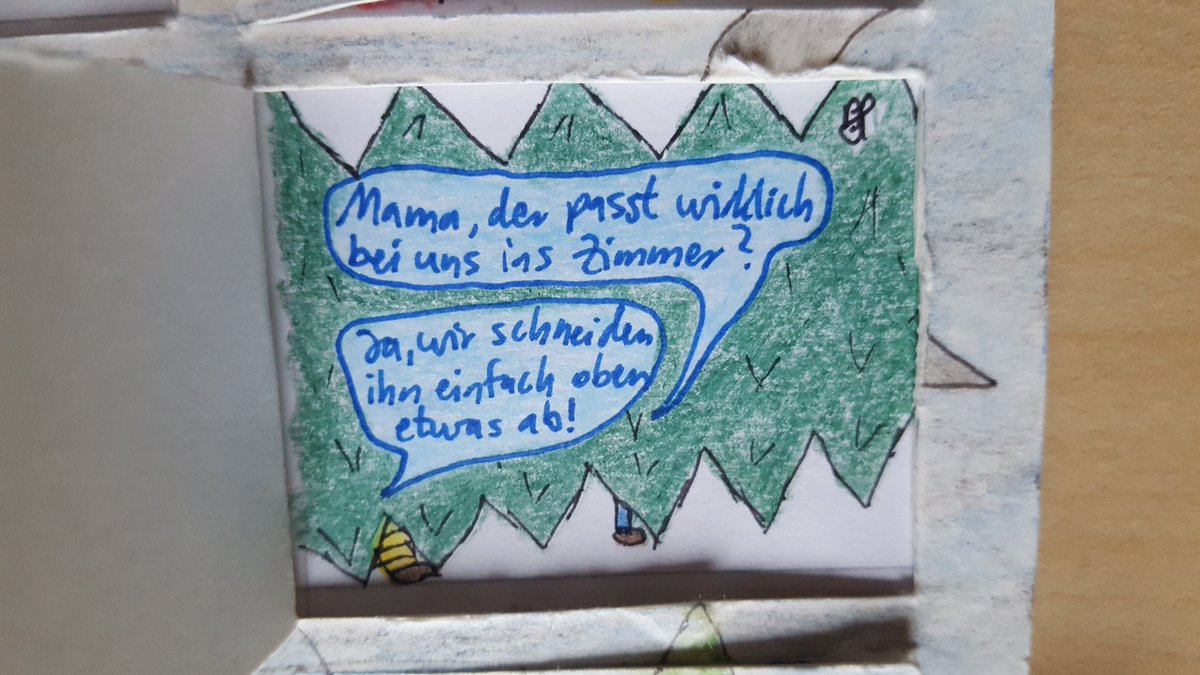 Mama, der passt wirklich
bei uns ins Zimmer?
Ja, wir schneiden
ihn einfach oben
etwas ab!